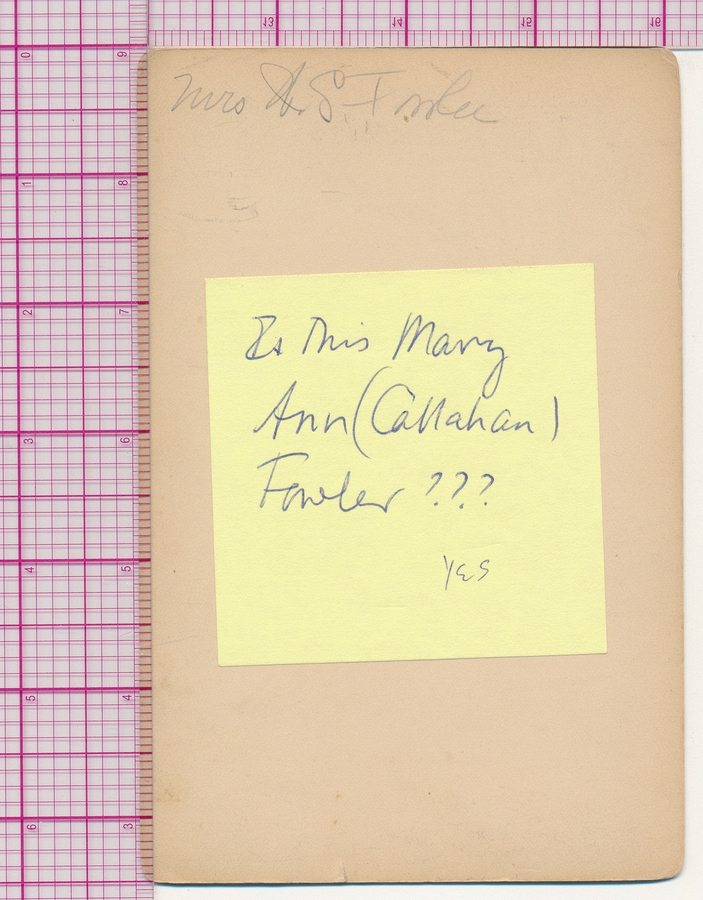 13 14 15 16
Mrs A. S. Fowler
Is This Mary
Ann (Callahan)
Fowler ???
YES
0 9
1 8
2 7
3 6
4 5
5 4
6 3